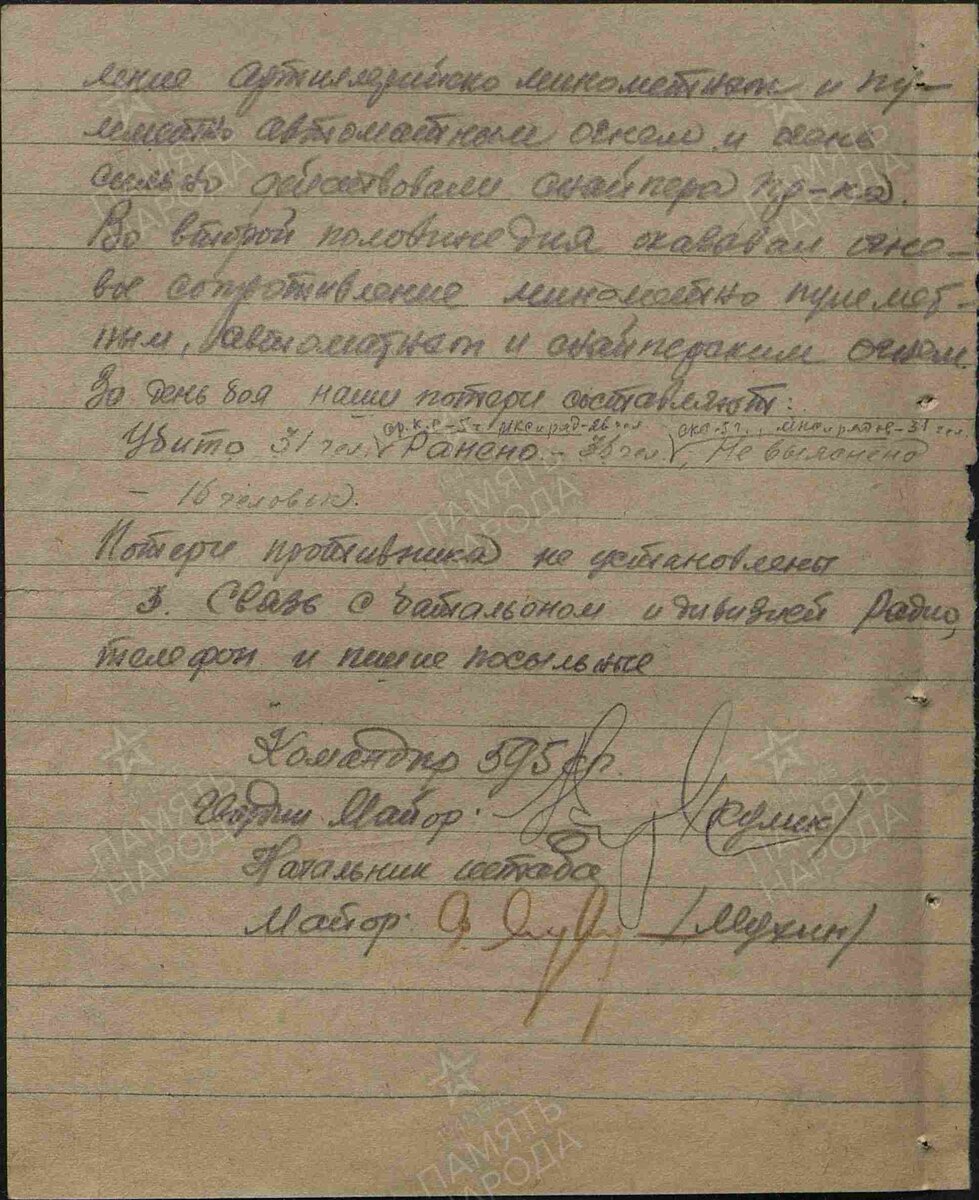 ление артиллерийско минометным и пу-
леметно автоматным огнем и очень
сильно действовали снайпера пр-ка.
Во второй половине дня оказывал огне-
вое сопротивление минометно пулемет-
ным, автоматным и снайперским огнем.
За день боя наши потери составляют:
ср. к. с - 5 ч. мкс и ряд - 26 чел скс - 5 ч., мнс и рядов - 31 чел.
Убито 31 чел, Ранено - 36 чел, Не выяснено
- 16 человек.
Потери противника не установлены
3. Связь с батальоном и дивизией Радио,
телефон и пешие посыльные
Командир 595 ср.
Гвардии Майор: (Кулик)
Начальник штаба
Майор: /Мухин/
ПАМЯТЬ НАРОДА
ПАМЯТЬ НАРОДА
ПАМЯТЬ НАРОДА
ПАМЯТЬ НАРОДА
ПАМЯТЬ НАРОДА
ПАМЯТЬ НАРОДА